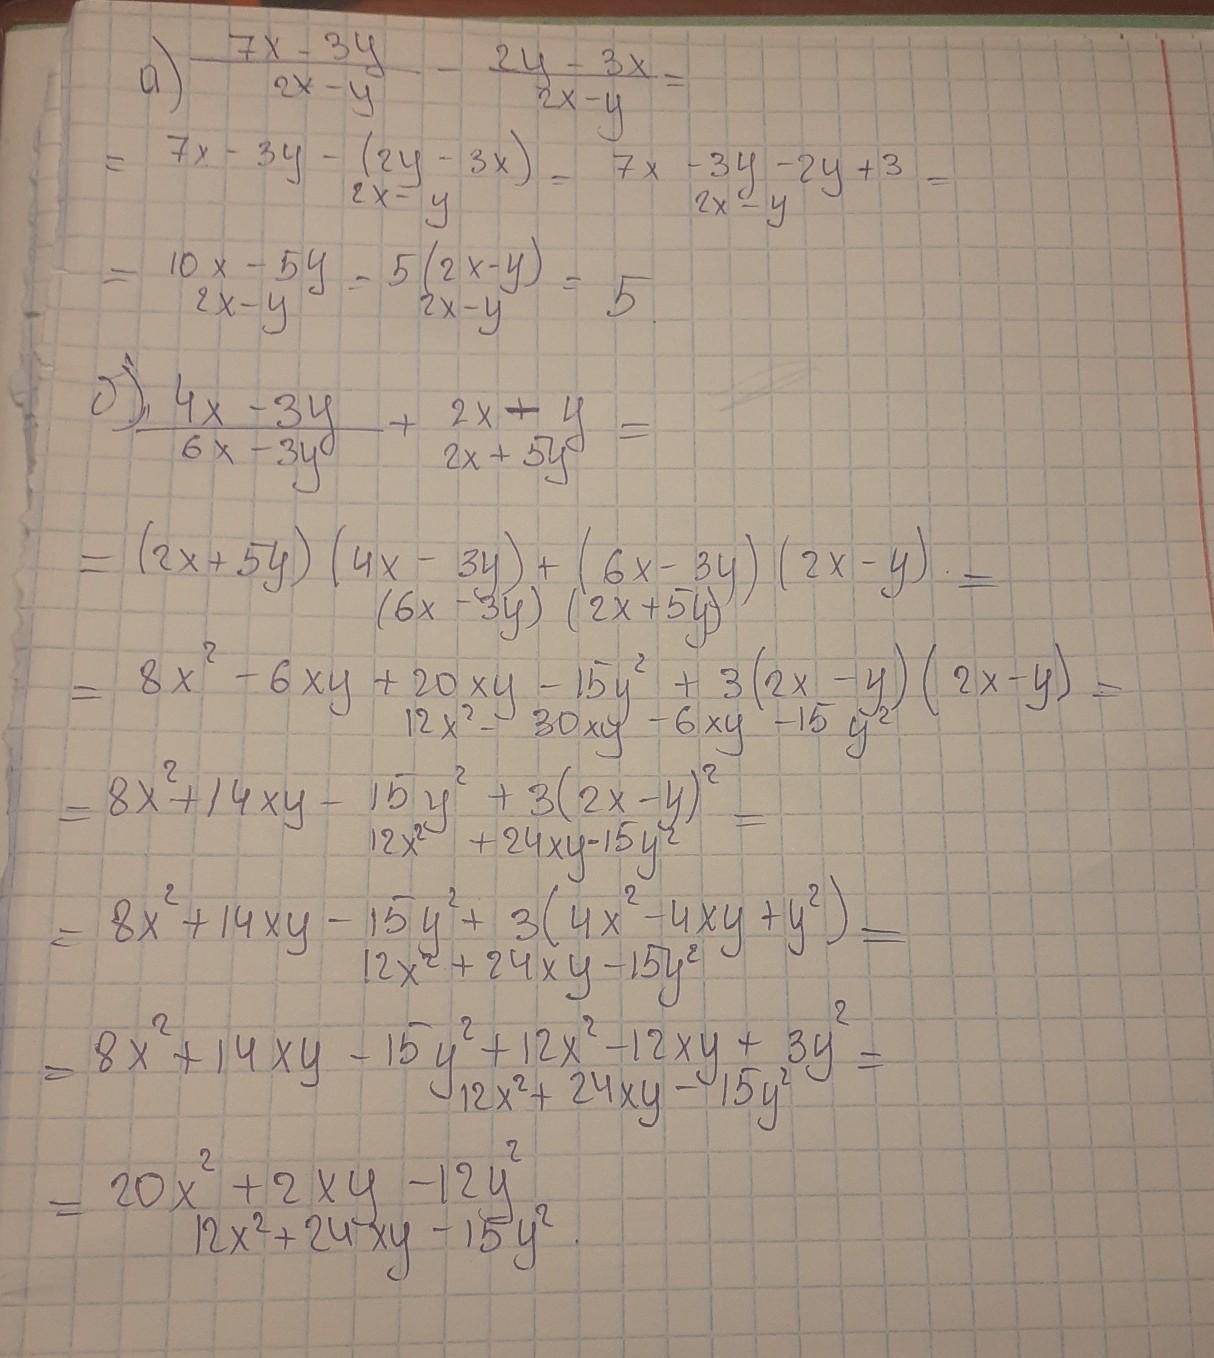 а) (7x - 3y)/(2x - y) - (2y - 3x)/(2x - y) =
= (7x - 3y - (2y - 3x))/(2x - y) = (7x - 3y - 2y + 3)/(2x - y) =
= (10x - 5y)/(2x - y) = 5(2x - y)/(2x - y) = 5
б) (4x - 3y)/(6x - 3y) + (2x + y)/(2x + 5y) =
= ((2x + 5y)(4x - 3y) + (6x - 3y)(2x - y))/((6x - 3y)(2x + 5y)) =
= (8x² - 6xy + 20xy - 15y² + 3(2x - y)(2x - y))/(12x² - 30xy - 6xy - 15y²) =
= (8x² + 14xy - 15y² + 3(2x - y)²)/(12x² + 24xy - 15y²) =
= (8x² + 14xy - 15y² + 3(4x² - 4xy + y²))/(12x² + 24xy - 15y²) =
= (8x² + 14xy - 15y² + 12x² - 12xy + 3y²)/(12x² + 24xy - 15y²) =
= (20x² + 2xy - 12y²)/(12x² + 24xy - 15y²).